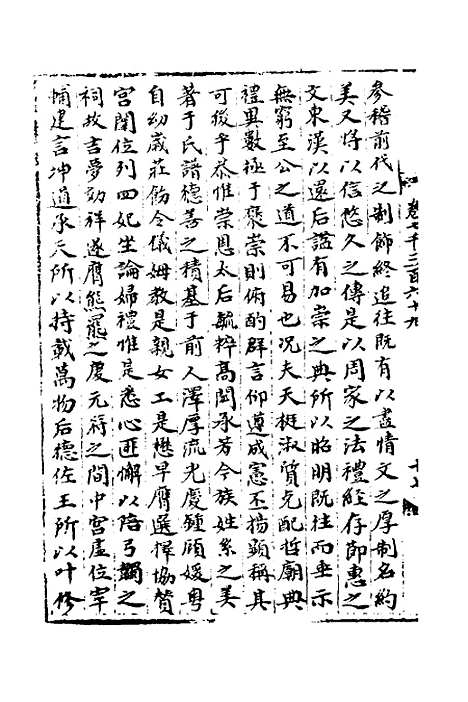 參稽前代之制節終追往既有以盡情文之厚制名約
美又將以信悠久之傳是以周家之法禮經存節惠之
文東漢以還后謚有加崇之典所以昭明既往而垂示
無窮至公之道不可易也況夫天挺淑質克配哲廟典
禮異數極于褒崇則俯酌群言仰遵成憲丕揚顯稱其
可後乎恭惟崇恩太后毓粹高閎承芳令族姓系之美
著于氏譜德善之積基于前人澤厚流光慶鍾碩媛粵
自幼歲莊飭令儀姆教是親女工是懋早膺選擇協贊
宮闈位列四妃坐論婦禮惟是悉心匪懈以陪弓韣之
祠故吉夢効祥遂膺熊羆之慶元符之間中宮虛位宰
輔建言坤道承天所以持載萬物后德佐王所以叶修
卷七千三百六十九